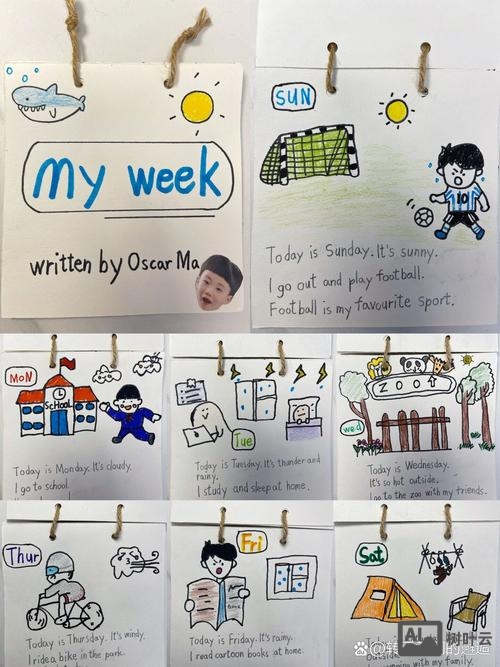 My week
written by Oscar Ma
SUN
10
Today is Sunday. It's sunny.
I go out and play football.
Football is my favourite sport.
MON
SCHOOL
Today is Monday. It's cloudy.
I go to school.
Tue
Today is Tuesday. It's thunder and
rainy.
I study and sleep at home.
ZOO
wed
Today is Wednesday.
It's so hot outside.
I go to the zoo with my friends.
Thur
Today is Thursday. It's windy.
I ride a bike in the park.
Fri
Today is Friday. It's rainy.
I read cartoon books at home.
Sat
Today
with my family.
AI
树叶云